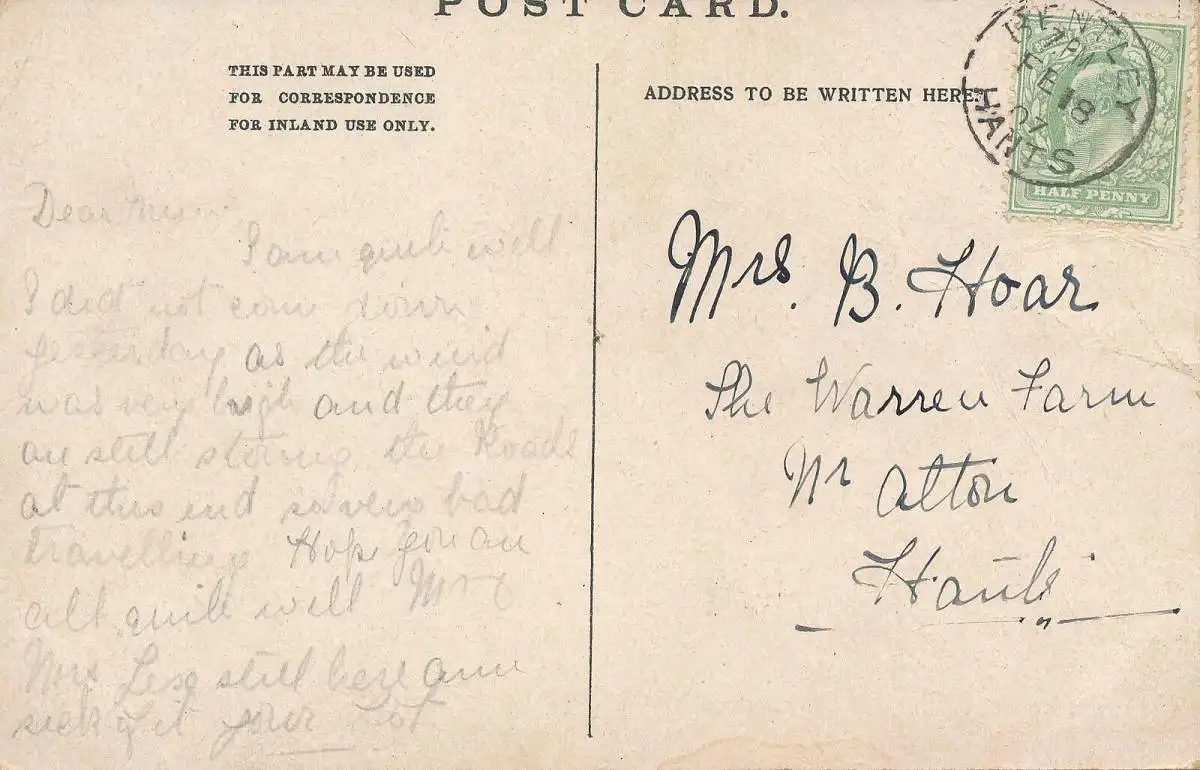 POST CARD.
THIS PART MAY BE USED
FOR CORRESPONDENCE
FOR INLAND USE ONLY.
ADDRESS TO BE WRITTEN HERE.
BENTLEY
7PM
FE 18
07
HANTS
HALF PENNY
Dear
I am quite well
I did not come down
yesterday as the wind
was very high and they
are still stoning the Roads
at this end so very bad
travelling Hope you are
all quite well Mr &
Mrs still here am
sick of it your
Mrs. B. Hoar
The Warren Farm
Nr Alton
Hants